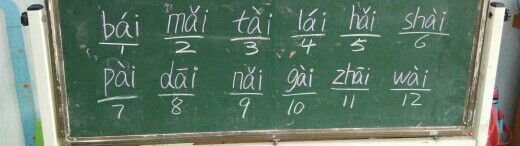 bái mǎi tài lái hǎi shài
1 2 3 4 5 6
pài dāi nǎi gài zhāi wài
7 8 9 10 11 12